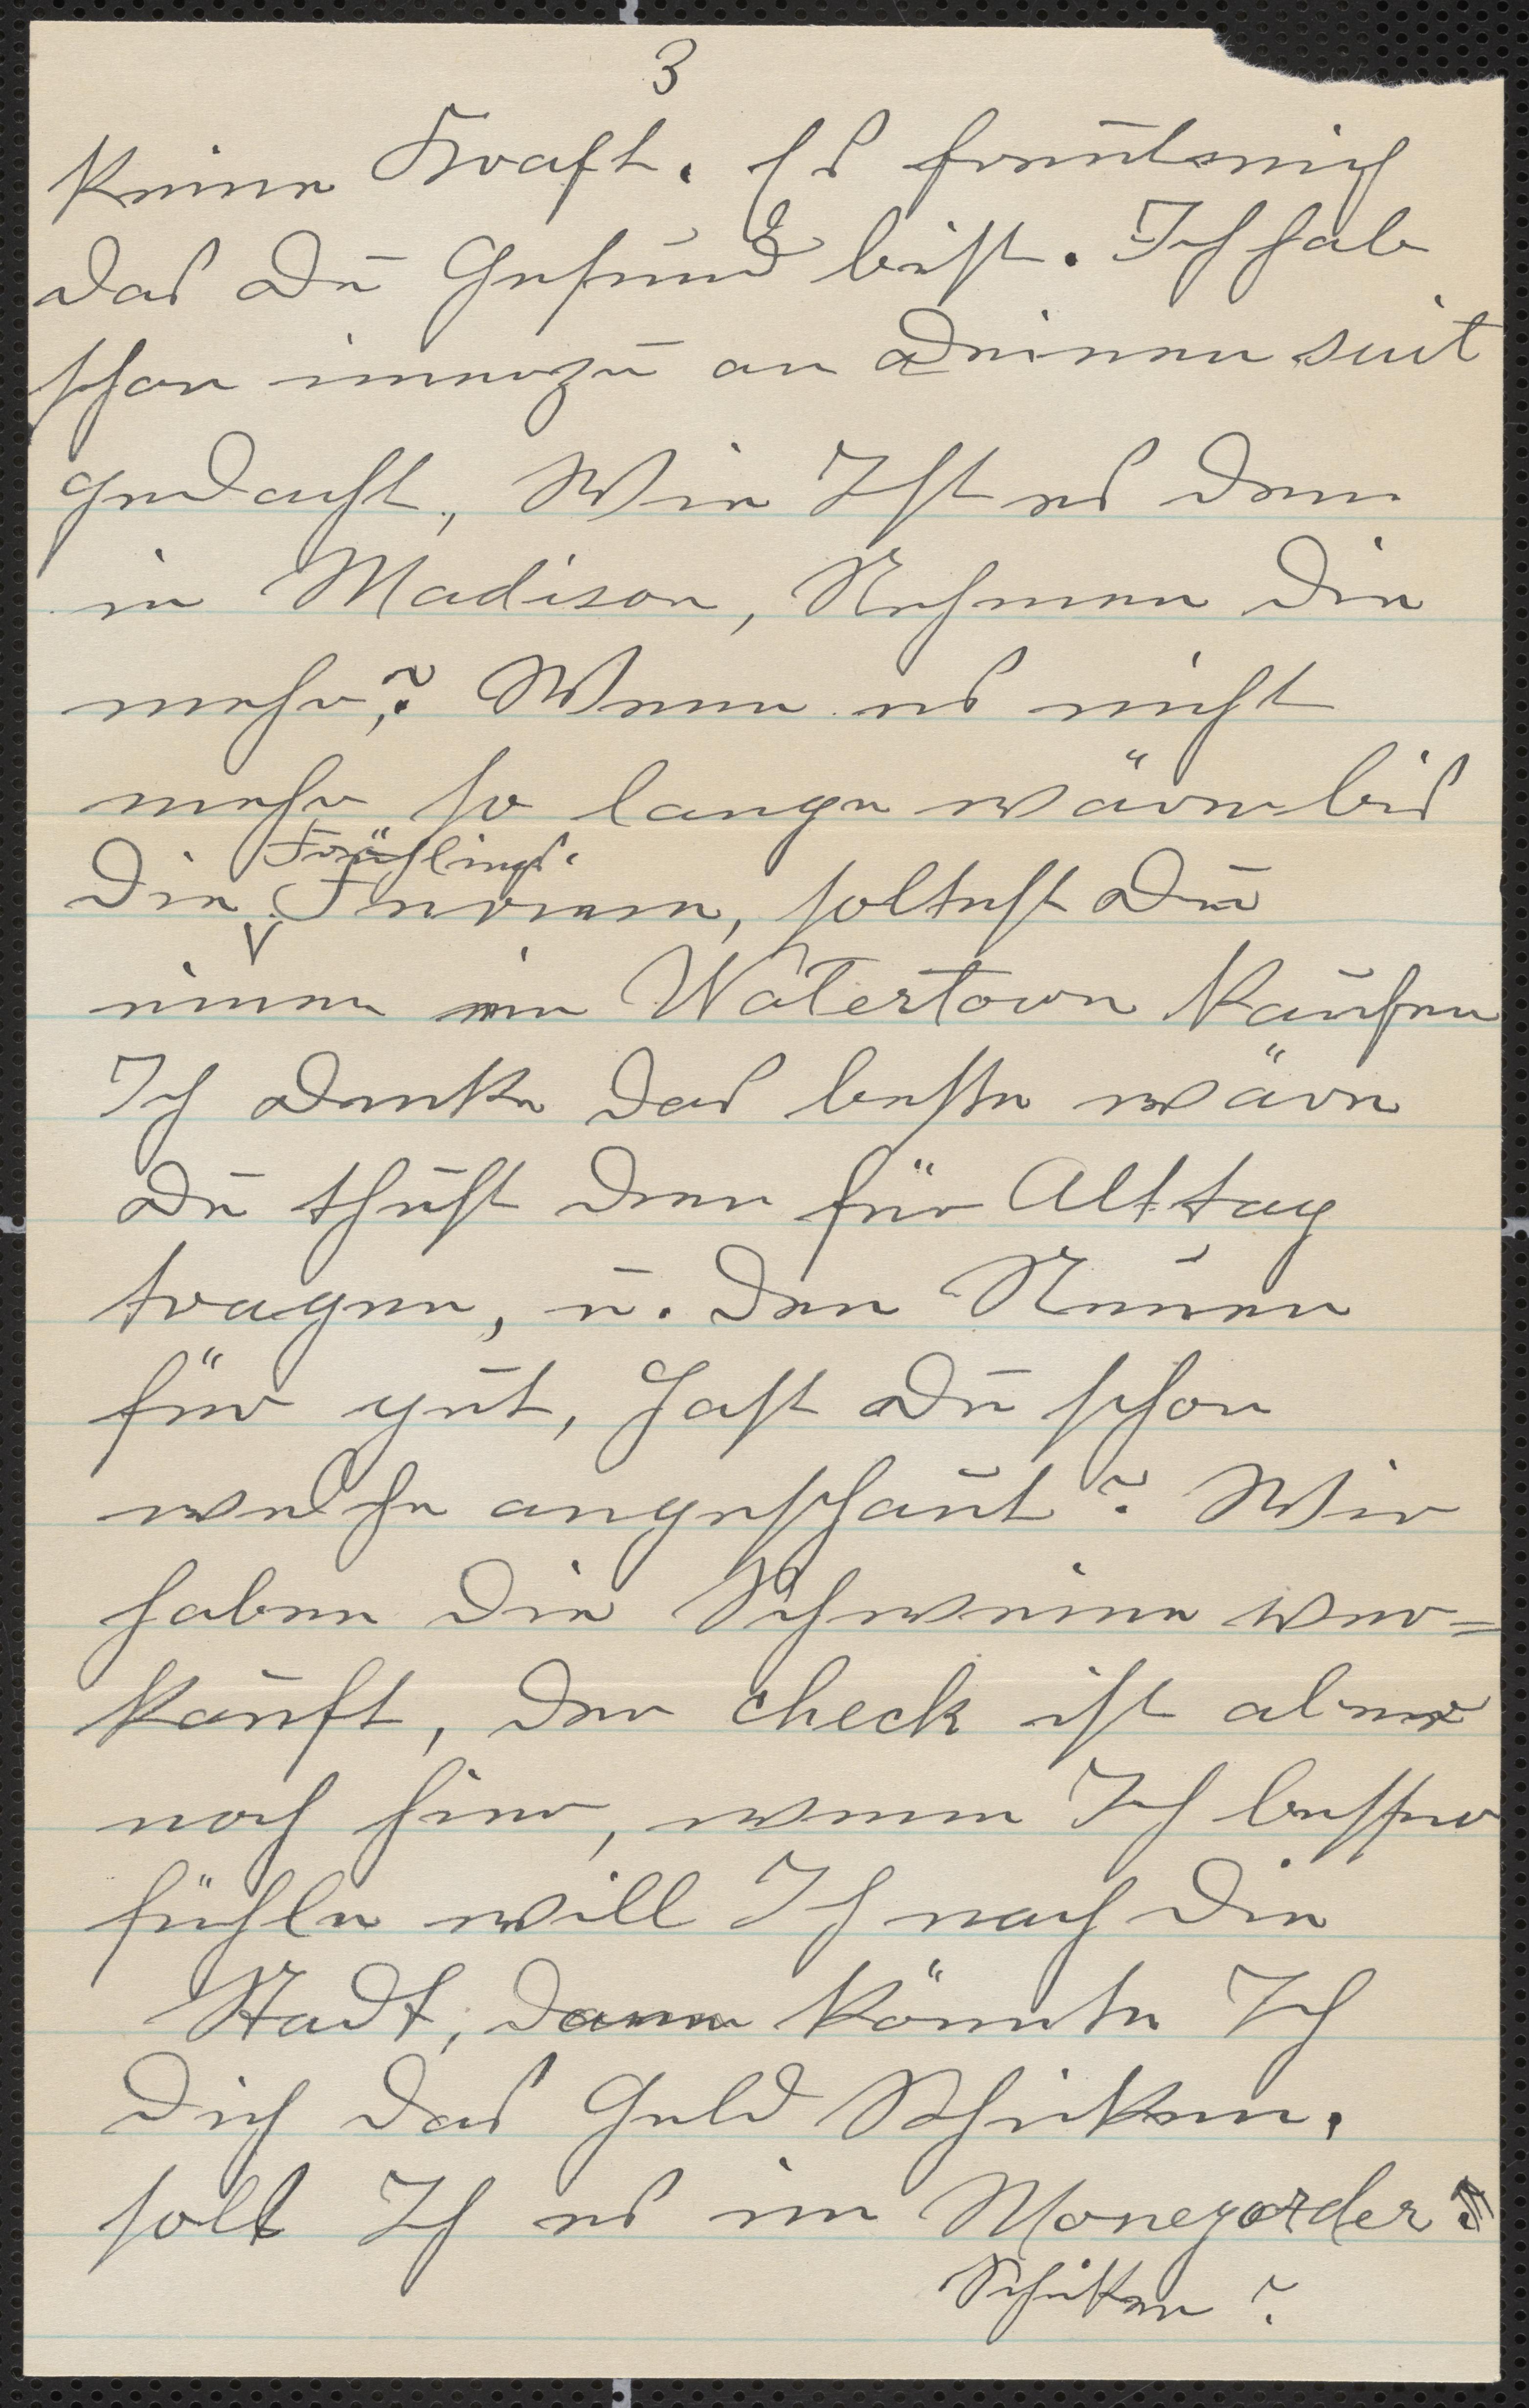 3
keine Kraft. Es freut mich
das du Gesund bist. Ich hab
schon immerzu an deinen suit
gedacht, Wie Ist es denn
in Madison, Nehmen die
mehr? Wenn es nicht
mehr so lange wäre bis
Frühlings.
die Ferien, soltest du
einen in Watertown kaufen
Ich denke das beste wäre
du thust den für Alttag
tragen, u. den Neuen
für gut, hast du schon
welche angeschaut? Wir
haben die Schweine ver=
kauft, der check ist aber
noch hier, wenn Ich besser
fühle will Ich nach die
Stadt, dann könnte Ich
dich das Geld Schicken.
solt Ich es in Moneyorder
Schicken?